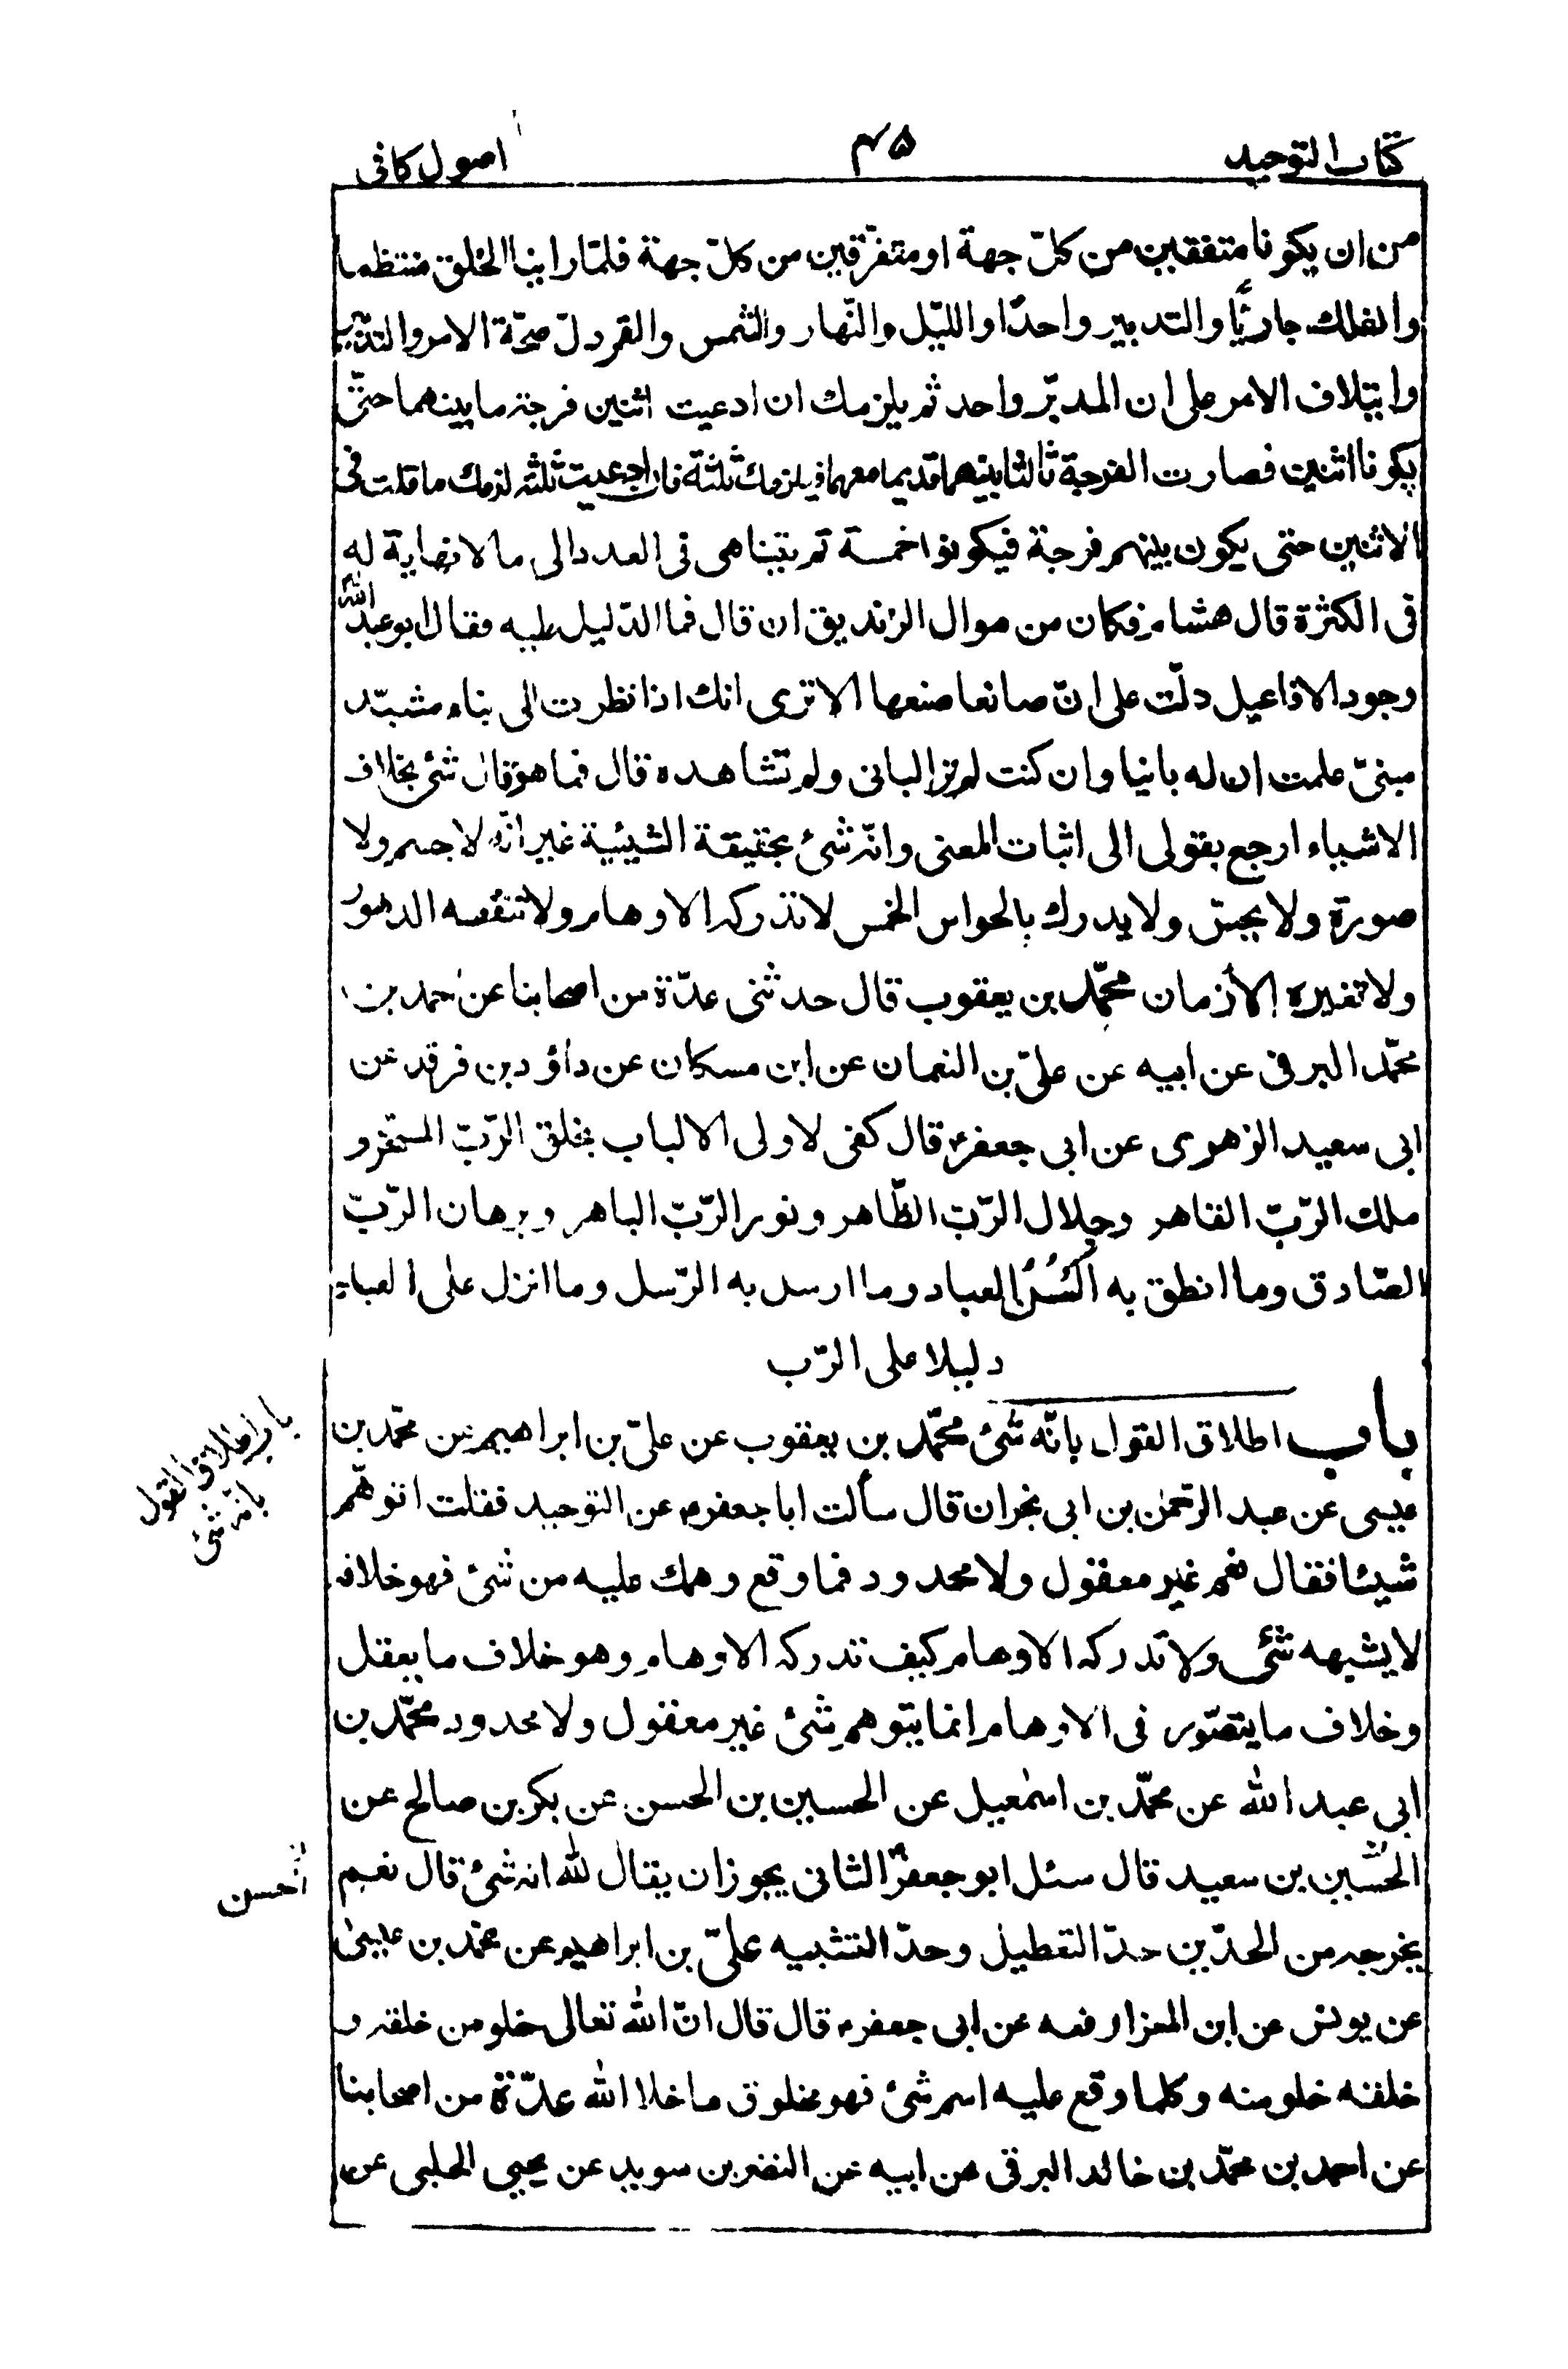 كتاب التوحيد
٤٥
اصول كافى
من ان يكونا متفقين من كلّ جهة او متفرّقين من كلّ جهة فلمّا راينا الخلق منتظما
والفلك جاريًا والتدبير واحدًا والليّل والنّهار والشمس والقمر دلّ صحّة الامر والتدّبير
وايتلاف الامر على ان المدبّر واحد ثم يلزمك ان ادعيت اثنين فرجة ما بينهما حتّى
يكونا اثنين فصارت الفرجة ثالثا بينهما قديما معهما فيلزمك ثلثة فان ادعيت ثلثة لزمك ما قلت فى
الاثنين حتى يكون بينهم فرجة فيكونوا خمسة ثم يتناهى فى العدد الى ما لا نهاية له
فى الكثرة قال هشام فكان من سوال الزنديق ان قال فما الدّليل عليه فقال ابو عبد الله
وجود الافاعيل دلّت على انّ صانعا صنعها الا ترى انك اذا نظرت الى بناء مشيّد
مبنىّ علمت ان له بانيا وان كنت لم تر البانى ولم تشاهده قال فما هو قال شئ بخلاف
الاشياء ارجع بقولى الى اثبات المعنى وانّه شئ بحقيقة الشيئية غير انّه لا جسم ولا
صورة ولا يحسّ ولا يدرك بالحواس الخمس لا تدركه الاوهام ولا تنقصه الدهور
ولا تغيره الأزمان محمّد بن يعقوب قال حدثنى عدّة من اصحابنا عن احمد بن
محمّد البرقى عن ابيه عن علىّ بن النعمان عن ابن مسكان عن داؤد بن فرقد عن
ابى سعيد الزهرى عن ابى جعفر ع قال كفى لاولى الالباب بخلق الرّبّ المسخّر و
ملك الرّبّ القاهر وجلال الرّبّ الظّاهر ونور الرّبّ الباهر وبرهان الرّبّ
الصّادق وما انطق به السُنُ العباد وما ارسل به الرّسل وما انزل على العباد
دليلا على الرّب
باب اطلاق القول بانّه شئ محمّد بن يعقوب عن علىّ بن ابراهيم عن محمّد بن
عيسى عن عبد الرّحمٰن بن ابى نجران قال سألت ابا جعفر ع عن التوحيد فقلت اتوهّم
شيئا فقال نعم غير معقول ولا محدود فما وقع وهمك عليه من شئ فهو خلافه
لا يشبهه شئ ولا تدركه الاوهام كيف تدركه الاوهام وهو خلاف ما يعقل
وخلاف ما يتصّور فى الاوهام انما يتوهم شئ غير معقول ولا محدود محمّد بن
ابى عبد الله عن محمّد بن اسمٰعيل عن الحسين بن الحسن عن بكر بن صالح عن
الحسين بن سعيد قال سئل ابو جعفر ع الثانى يجوز ان يقال لله انه شئ قال نعم
يخرجه من الحدّين حدّ التعطيل وحدّ التشبيه علىّ بن ابراهيم عن محمّد بن عيسىٰ
عن يونس عن ابن المعزا رفعه عن ابى جعفر ع قال قال انّ الله تعالى خلو من خلقه و
خلقه خلو منه وكلما وقع عليه اسم شئ فهو مخلوق ما خلا الله عدّة من اصحابنا
عن احمد بن محمّد بن خالد البرقى عن ابيه عن النضر بن سويد عن يحيى الحلبى عن
باب اطلاق القول
بانه شئ
الحسن